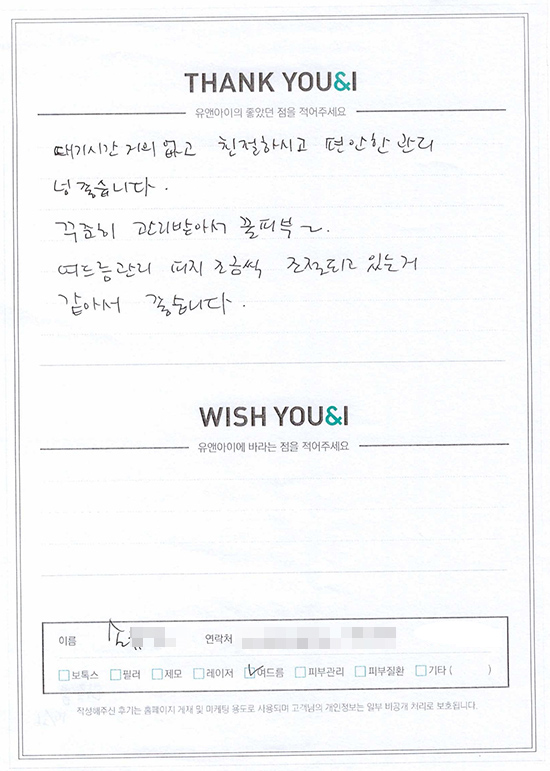 THANK YOU&I
유앤아이의 좋았던 점을 적어주세요
대기시간 거의 없고 친절하시고 편안한 관리
넘 좋습니다.
꾸준히 관리받아서 꿀피부~.
여드름관리 피지 조금씩 조절되고 있는거
같아서 좋습니다.
WISH YOU&I
유앤아이에 바라는 점을 적어주세요
이름 연락처
보톡스 필러 제모 레이저 여드름 피부관리 피부질환 기타 ( )
작성해주신 후기는 홈페이지 게재 및 마케팅 용도로 사용되며 고객님의 개인정보는 일부 비공개 처리로 보호됩니다.